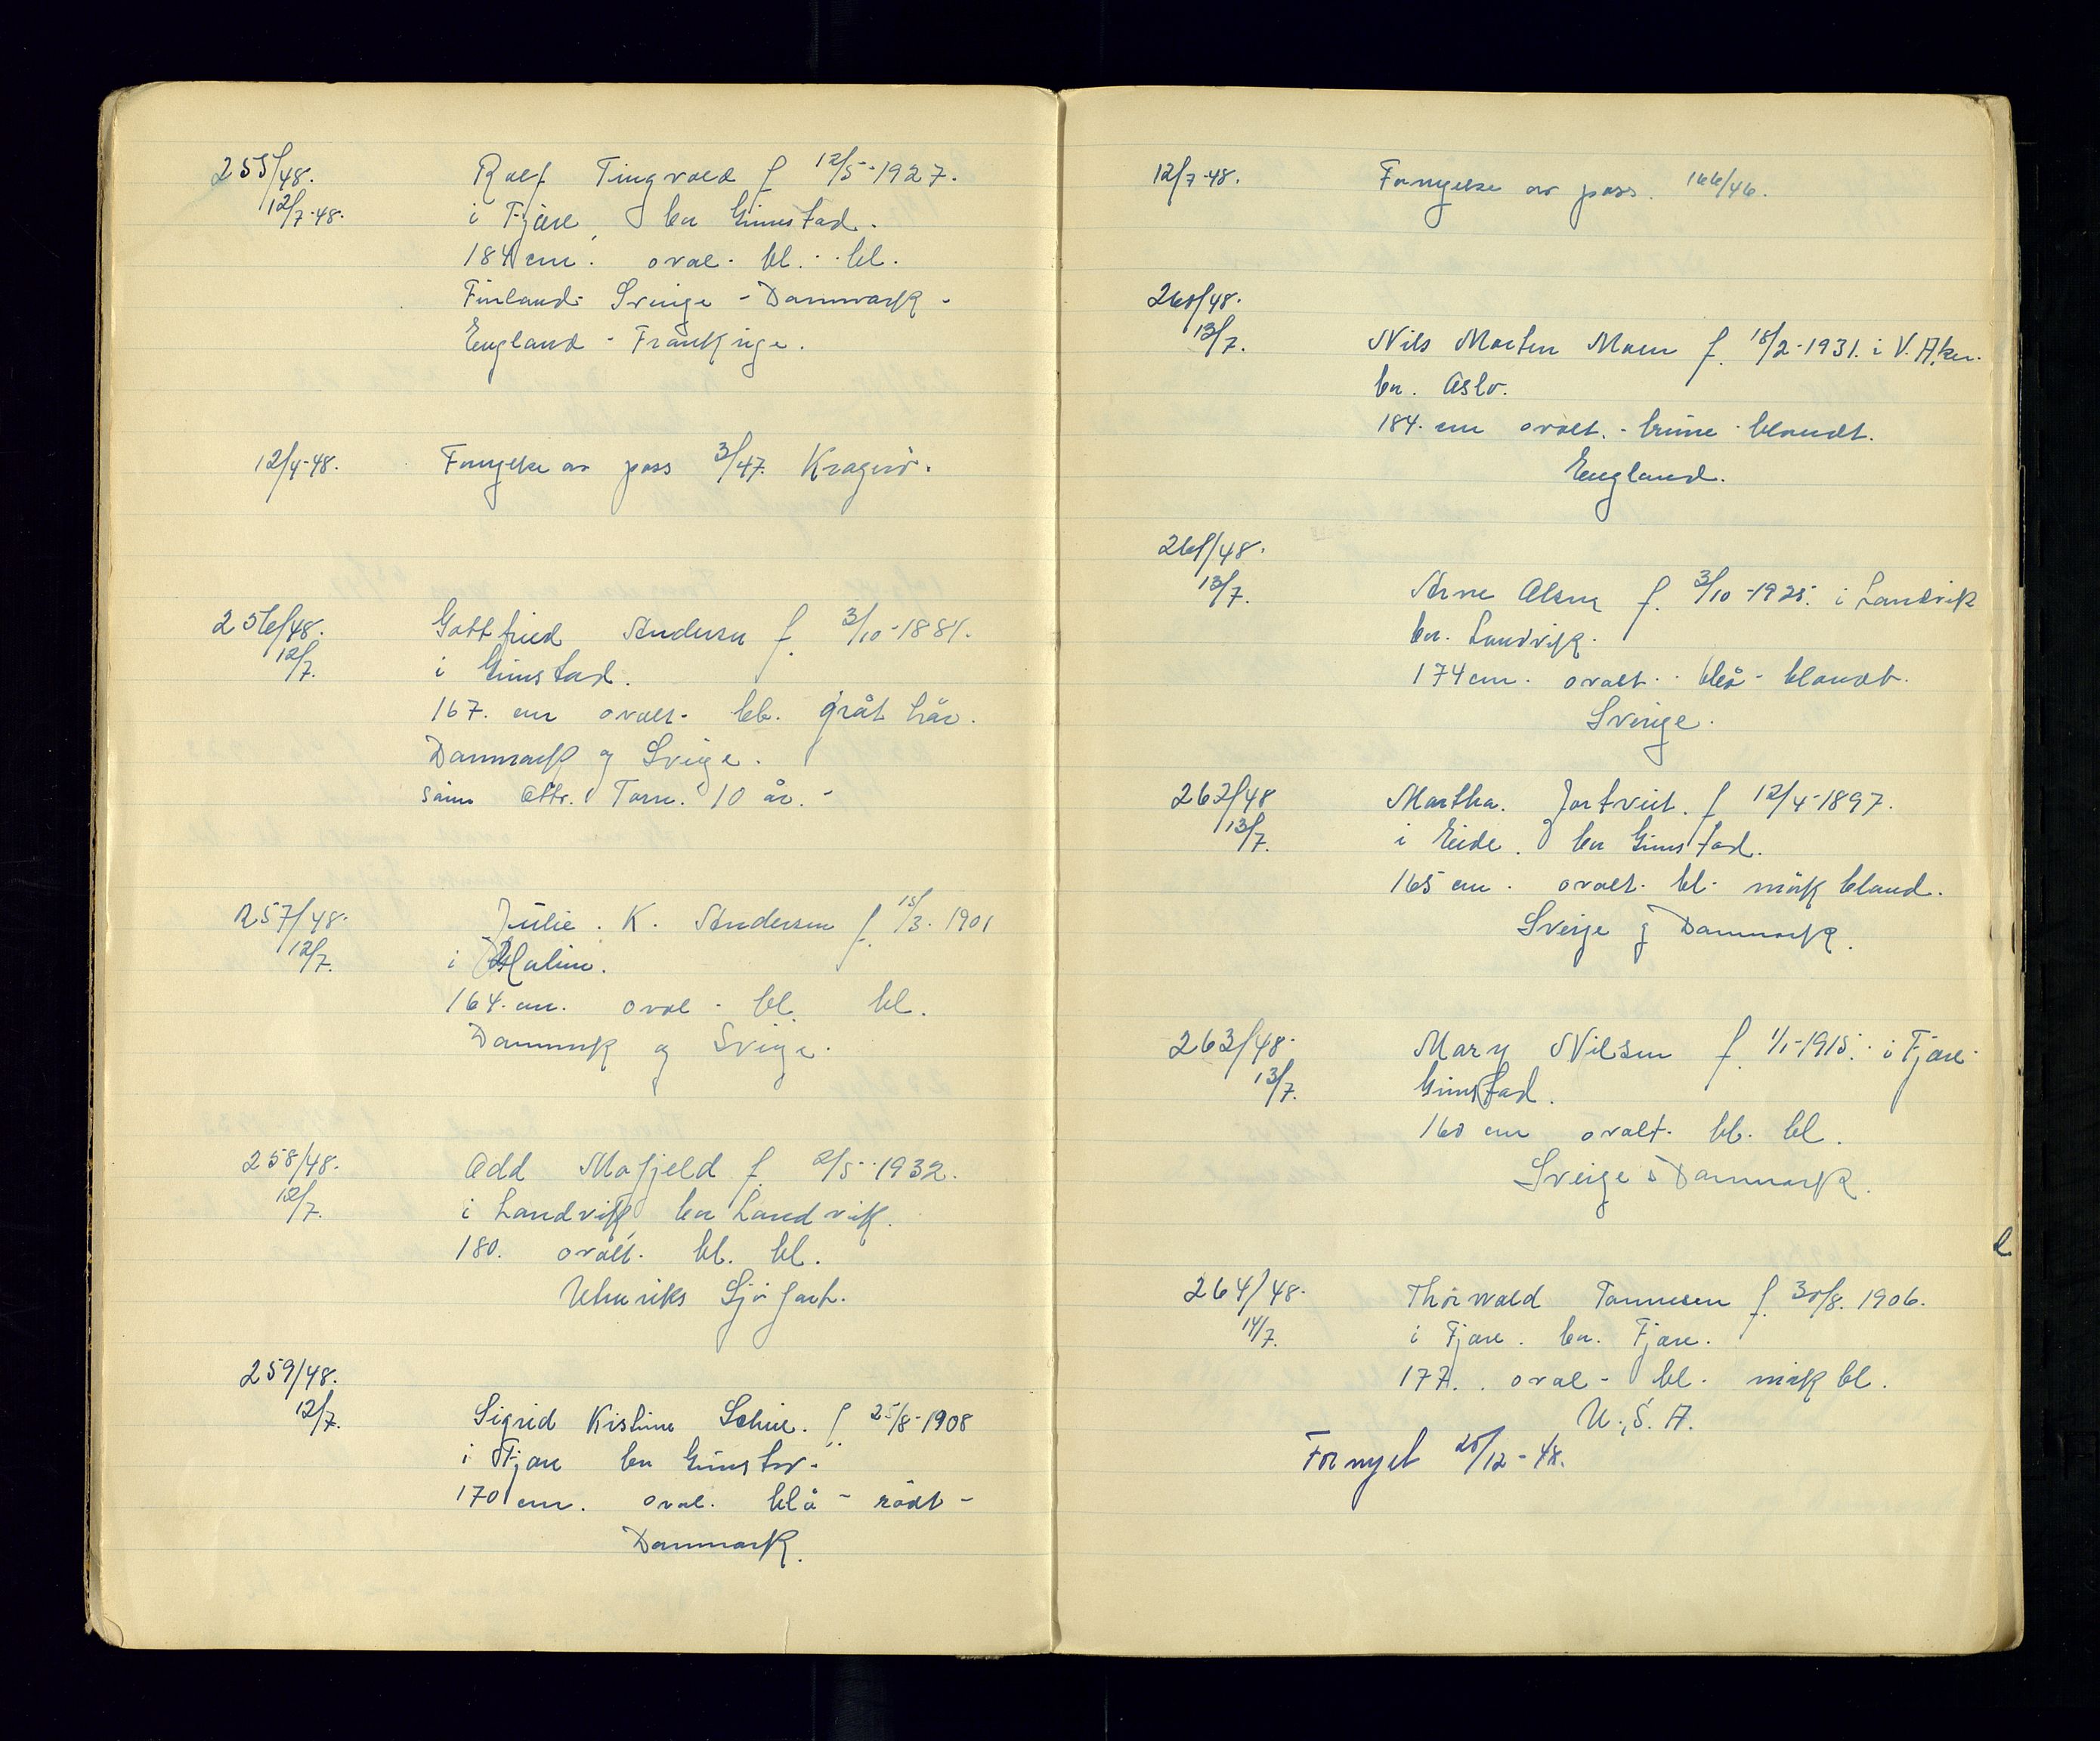 255/48. Rolf Tingvold f 12/5-1927.
12/7-48. i Fjære, bor Grimstad.
184 cm. oval - bl. - bl.
Finland - Sverige - Danmark -
England - Frankrige.
12/7-48. Fornyelse av pass 3/47. Kragerø.
256/48. Gottfried Andersen f. 3/10-1881.
12/7. i Grimstad.
167. cm ovalt - bl. gråt hår.
Danmark og Sverige.
10 år. -
257/48. Julie. K. Andersen f. 15/3. 1901
12/7. i
164. cm. oval - bl. bl.
Danmark og Sverige.
258/48. Odd Mofjeld f. 2/5-1932.
12/7. i Landvik, bor Landvik.
180. ovalt. bl. bl.
Utenriks Sjøfart.
259/48.
12/7. Sigrid Kistine f. 25/8-1908
i Fjære bor Grimstad.
170 cm. oval. blå - rødt -
Danmark.
12/7-48. Fornyelse av pass. 166/46.
260/48.
13/7. Nils Morten Moen f. 18/2-1931. i V. Aker.
bor. Oslo.
184. cm ovalt. - brune - blondt.
England.
261/48.
13/7. Arne Olsen f. 3/10-1925. i Landvik
bor. Landvik.
174 cm. ovalt. - blå - blondt.
Sverige.
262/48 Martha. Jortveit. f 12/4-1897.
13/7. i Eide. bor Grimstad.
165 cm. ovalt. bl. mørk blond.
Sverige og Danmark.
263/48. Mary Nilsen f. 1/1-1915. i Fjære -
13/7. Grimstad.
160 cm ovalt. bl. bl.
Sverige Danmark.
264/48. Thorvald Tønnesen f. 30/8. 1906.
14/7. i Fjære. bor. Fjære.
177. . oval - bl. mørk bl.
U.S.A.
Fornyet 28/12-48.